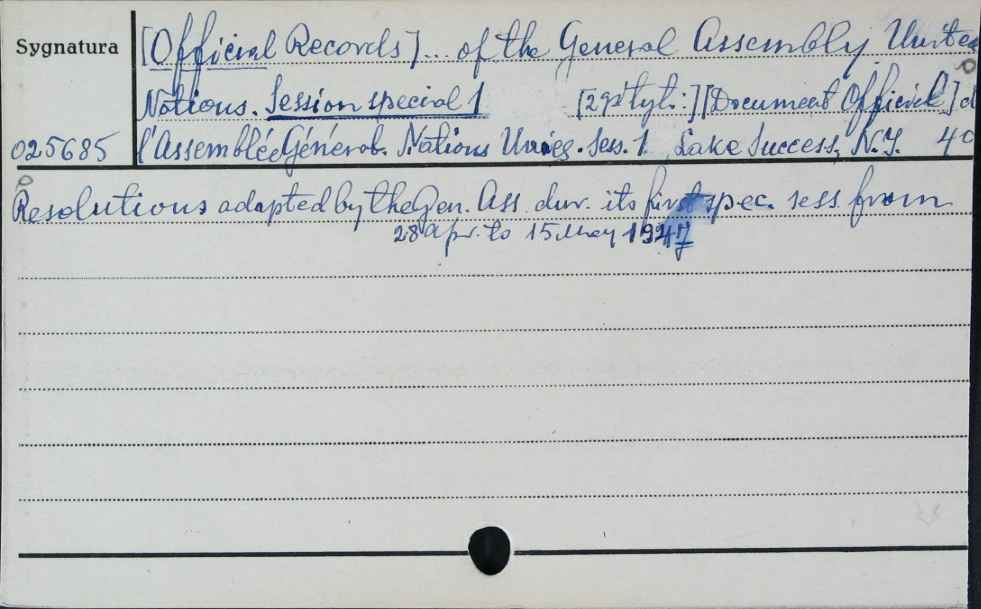 Sygnatura
[Official Records] ... of the General Assembly United
Nations. Session special 1 [2gi tyt.:] [Document Officiel] d
025685 l'Assemblée Général. Nations Unies. Sess. 1 Lake Success, N.Y. 40
Resolutions adapted by the Gen. Ass. dur. its first spec. sess from
28 apr. to 15 May 1947